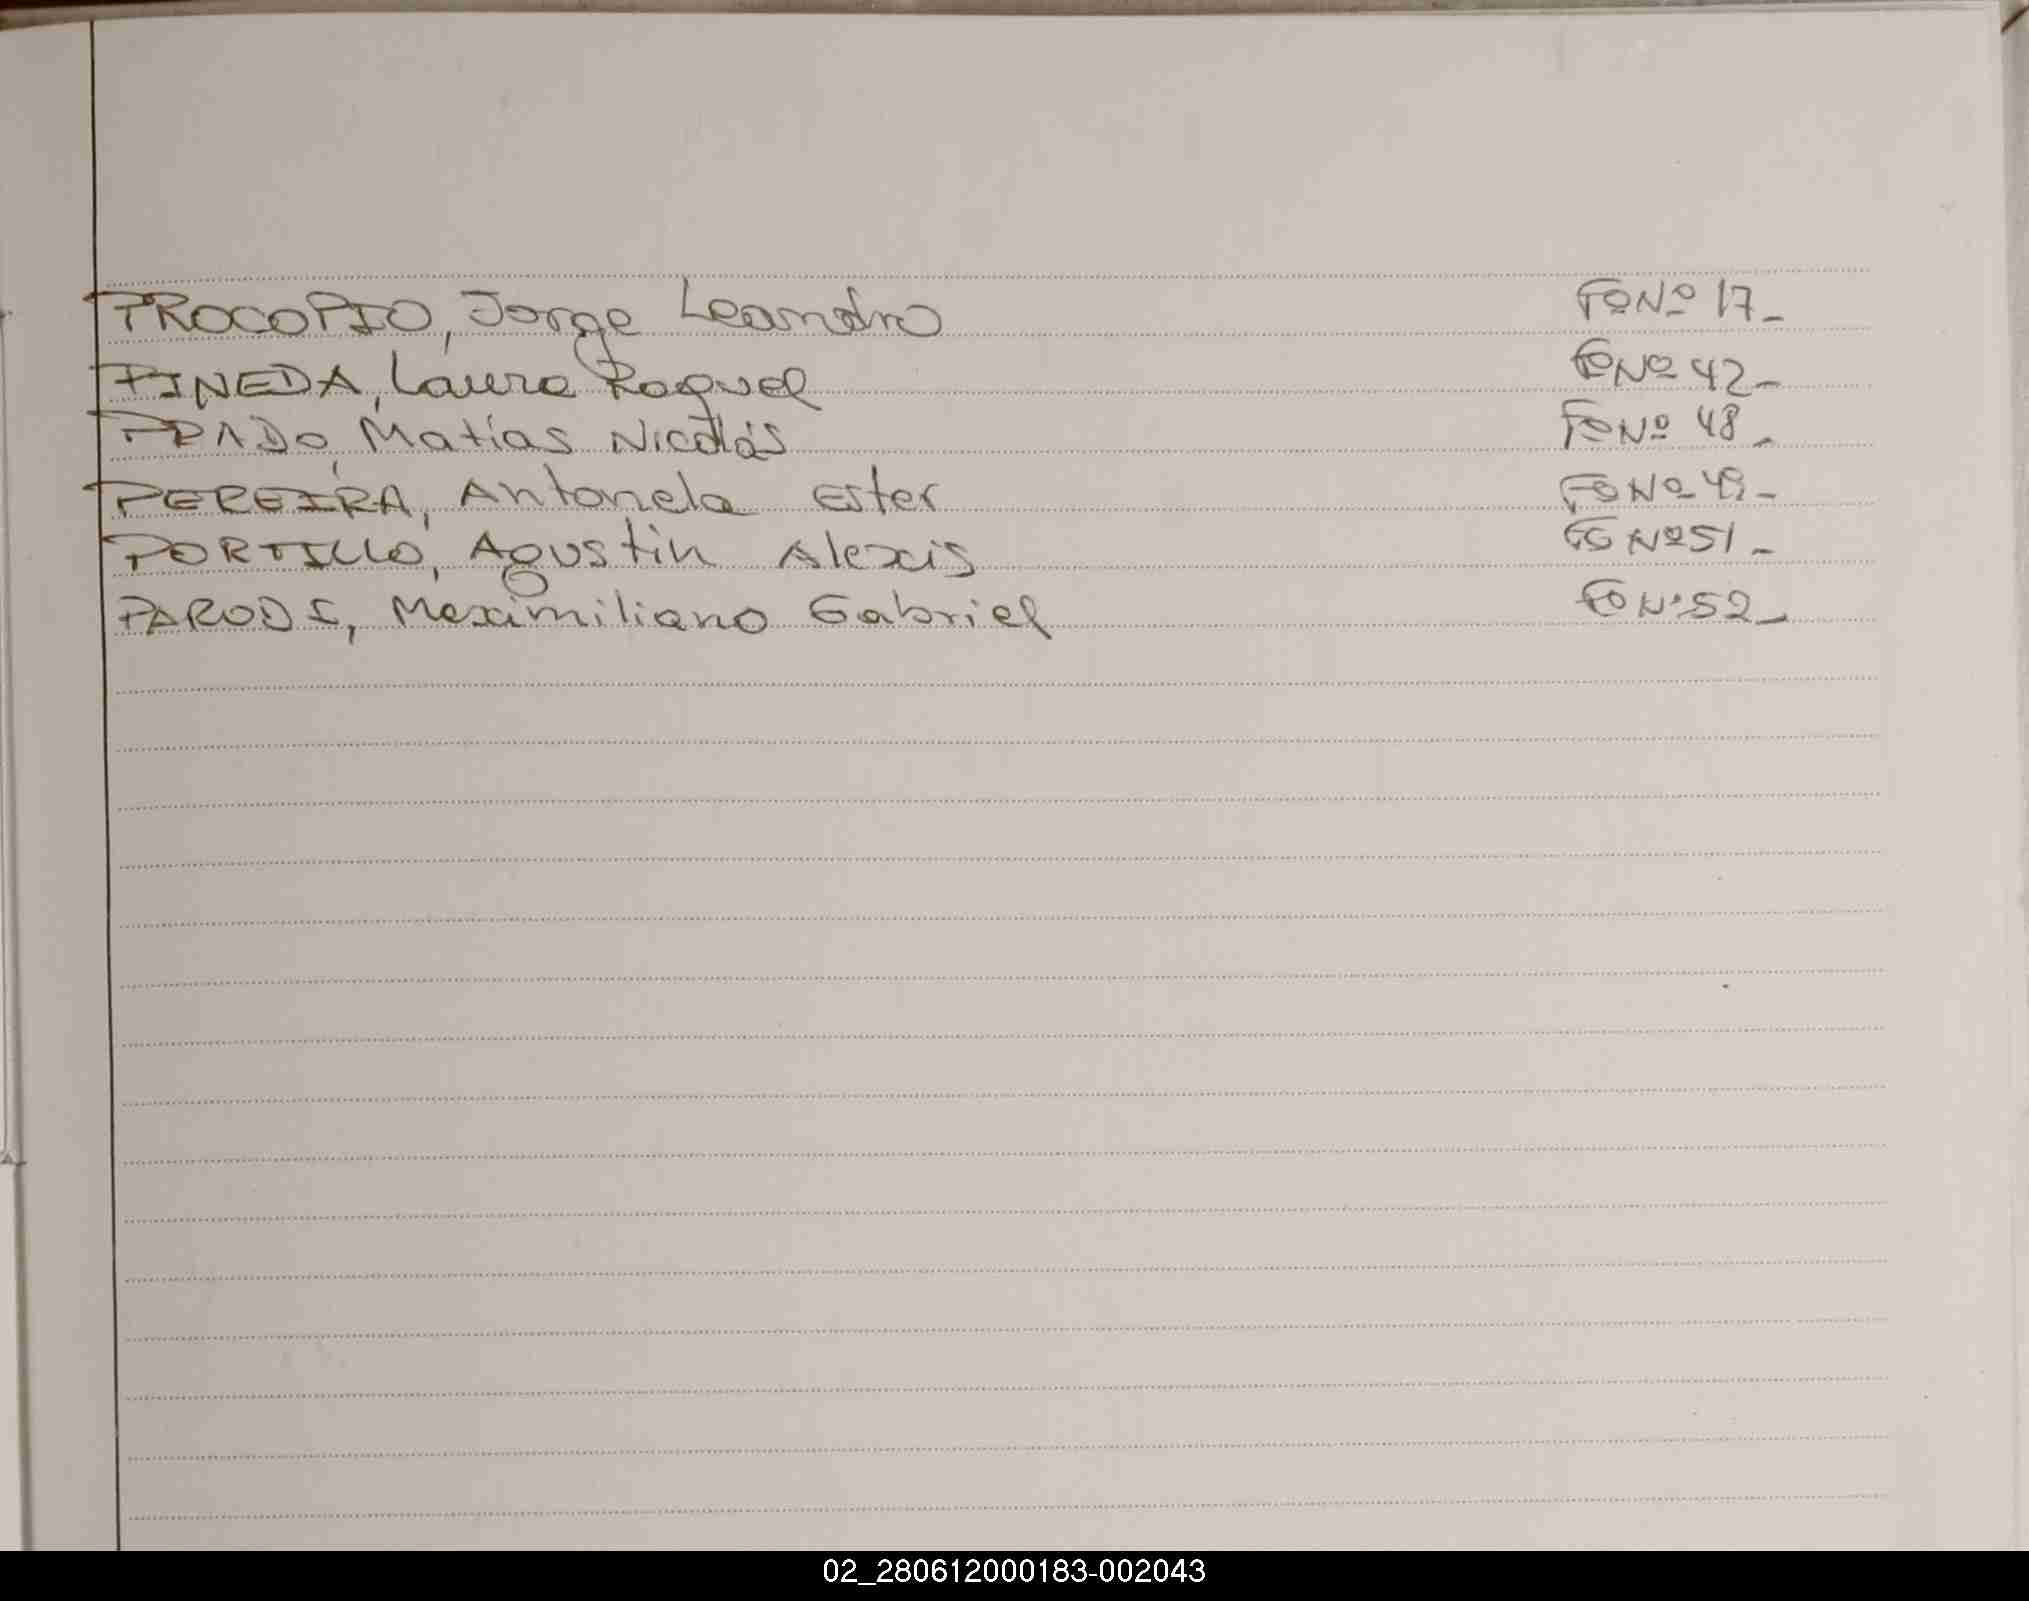 PROCOPIO, Jorge Leandro Fº Nº 17_
PINEDA, Laura Raquel Fº Nº 42_
PRADO, Matías Nicolás Fº Nº 48_
PEREIRA, Antonela Ester Fº Nº 49_
PORTILLO, Agustin Alexis Fº Nº 51_
PARODI, Maximiliano Gabriel Fº Nº 52_
02_280612000183-002043